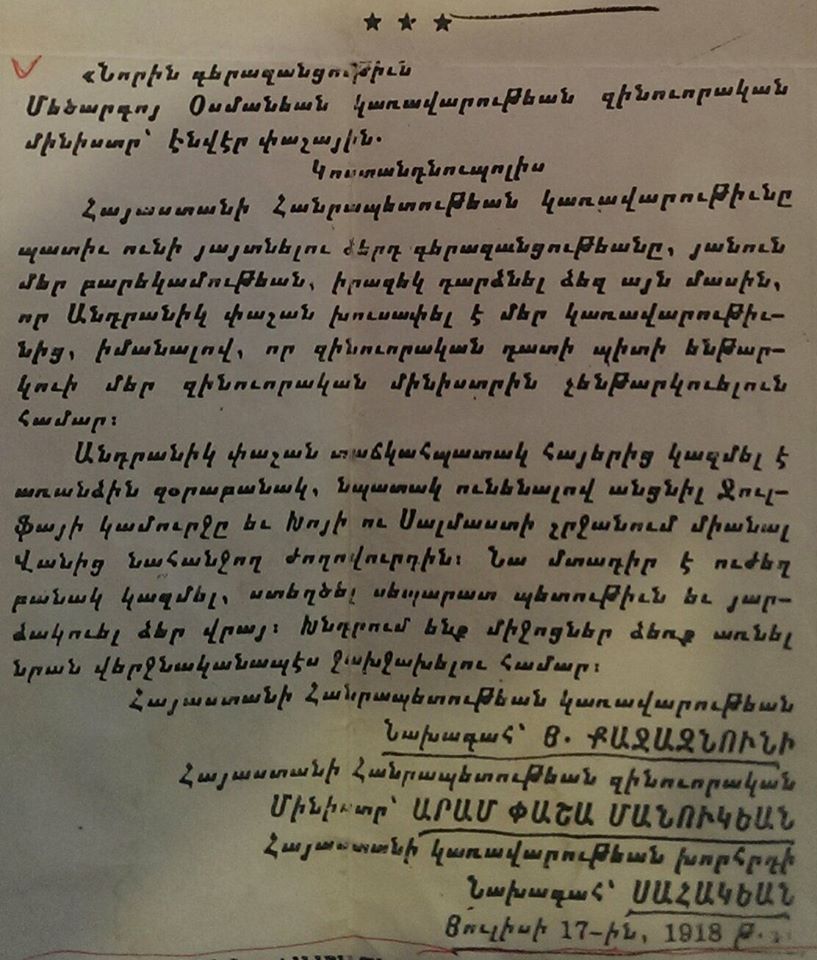 ★ ★ ★
«Նորին գերազանցութիւն
Մեծարգոյ Օսմանեան կառավարութեան զինուորական
մինիստր՝ Էնվէր փաշային.
Կոստանդնուպոլիս
Հայաստանի Հանրապետութեան կառավարութիւնը
պատիւ ունի յայտնելու ձերդ գերազանցութեանը, յանուն
մեր բարեկամութեան, իրազեկ դարձնել ձեզ այն մասին,
որ Անդրանիկ փաշան խուսափել է մեր կառավարութիւ–
նից, իմանալով, որ զինուորական դատի պիտի ենթար–
կուի մեր զինուորական մինիստրին չենթարկուելուն
համար։
Անդրանիկ փաշան տաճկահպատակ հայերից կազմել է
առանձին զօրաբանակ, նպատակ ունենալով անցնիլ Ջուլ–
ֆայի կամուրջը եւ Խոյի ու Սալմաստի շրջանում միանալ
Վանից նահանջող ժողովուրդին։ Նա մտադիր է ուժեղ
բանակ կազմել, ստեղծել սեպարատ պետութիւն եւ յար–
ձակուել ձեր վրայ։ Խնդրում ենք միջոցներ ձեռք առնել
նրան վերջնականապէս ջախջախելու համար։
Հայաստանի Հանրապետութեան կառավարութեան
Նախագահ՝ Յ. ՔԱՋԱԶՆՈՒՆԻ
Հայաստանի Հանրապետութեան զինուորական
Մինիստր՝ ԱՐԱՄ ՓԱՇԱ ՄԱՆՈՒԿԵԱՆ
Հայաստանի կառավարութեան խորհրդի
Նախագահ՝ ՍԱՀԱԿԵԱՆ
Յուլիսի 17–ին, 1918 թ.